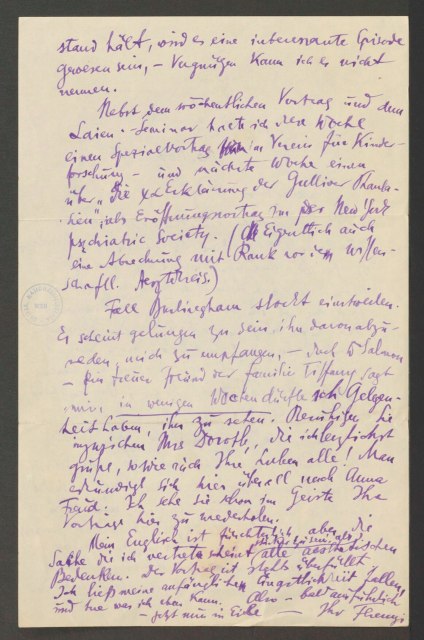 stand hält, wird es eine interessante Episode
gewesen sein, – Vergnügen kann ich es nicht
nennen.
Nebst dem wöchentlichen Vortrag und dem
Laien-Seminar hatte ich diese Woche
einen Spezialvortrag im Verein für Kinder-
forschung – und nächste Woche einen
über „die Erklärung der Gulliver Phanta-
sien", als Eröffnungsvortrag in der New York
psychiatric Society. (Eigentlich auch
eine Abrechnung mit Rank vor dem wissen-
schaftl. Aerztekreis.)
Fall Burlingham stockt einstweilen.
Es scheint gelungen zu sein, ihn davon abzu-
reden, mich zu empfangen, – doch Dr Salmon
– ein treuer Freund der Familie Tiffany, sagt
mir, in wenigen Wochen dürfte sich Gelegen-
heit haben, ihn zu sehen. Beruhigen Sie
inzwischen Mrs Dorothy, die ich herzlichst
grüße, sowie auch Ihre Lieben alle! Man
erkundigt sich hier überall nach Anna
Freud. Ich sehe Sie schon im Geiste Ihre
Vorträge hier zu wiederholen.
Mein Englisch ist fürchterlich, aber die
Sache die ich vertrete scheint alle aesthetischen
Bedenken. Der Vortrag ist stets überfüllt.
Ich ließ meine anfängliche Ängstlichkeit fallen,
und tue was ich eben kann. Also – bald ausführlich
– jetzt nur in Eile – Ihr Ferenczi